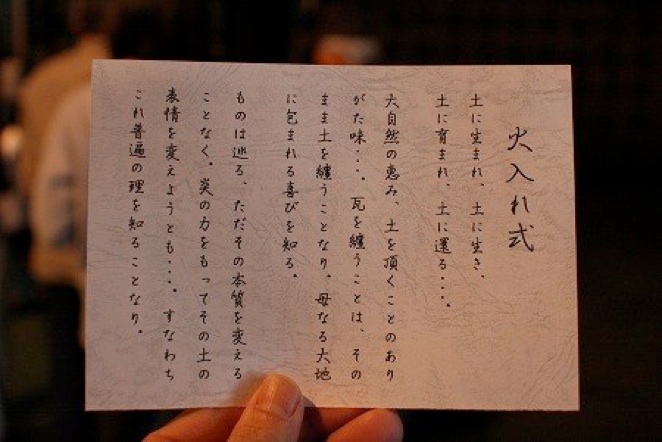 火入れ式
土に生まれ、土に生き、
土に育まれ、土に還る・・・。
大自然の恵み、土を頂くことのあり
がた味・・・。瓦を纏うことは、その
まま土を纏うことなり。母なる大地
に包まれる喜びを知る。
ものは巡る、ただその本質を変える
ことなく。炎の力をもってその土の
表情を変えようとも・・・。すなわち
これ普遍の理を知ることなり。